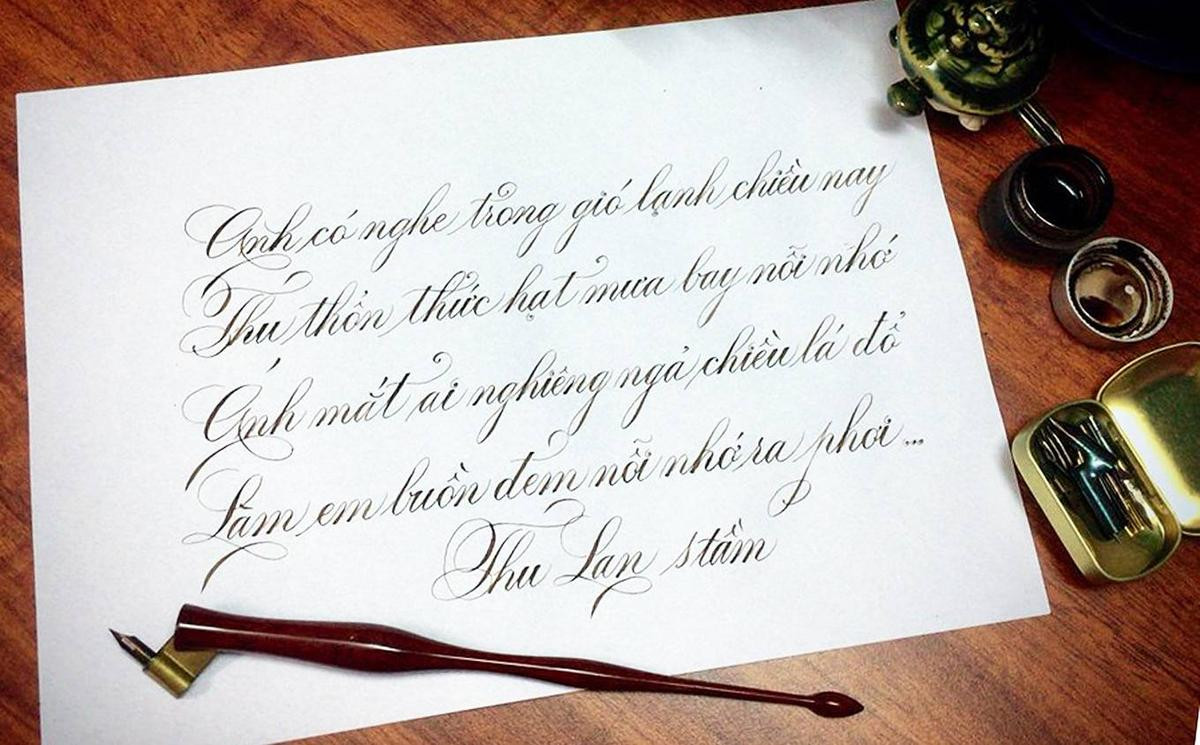 Anh có nghe trong gió lạnh chiều nay
Thu thổn thức hạt mưa bay nỗi nhớ
Ánh mắt ai nghiêng ngả chiều lá đổ
Làm em buồn đem nỗi nhớ ra phơi...
Thu Lan stầm